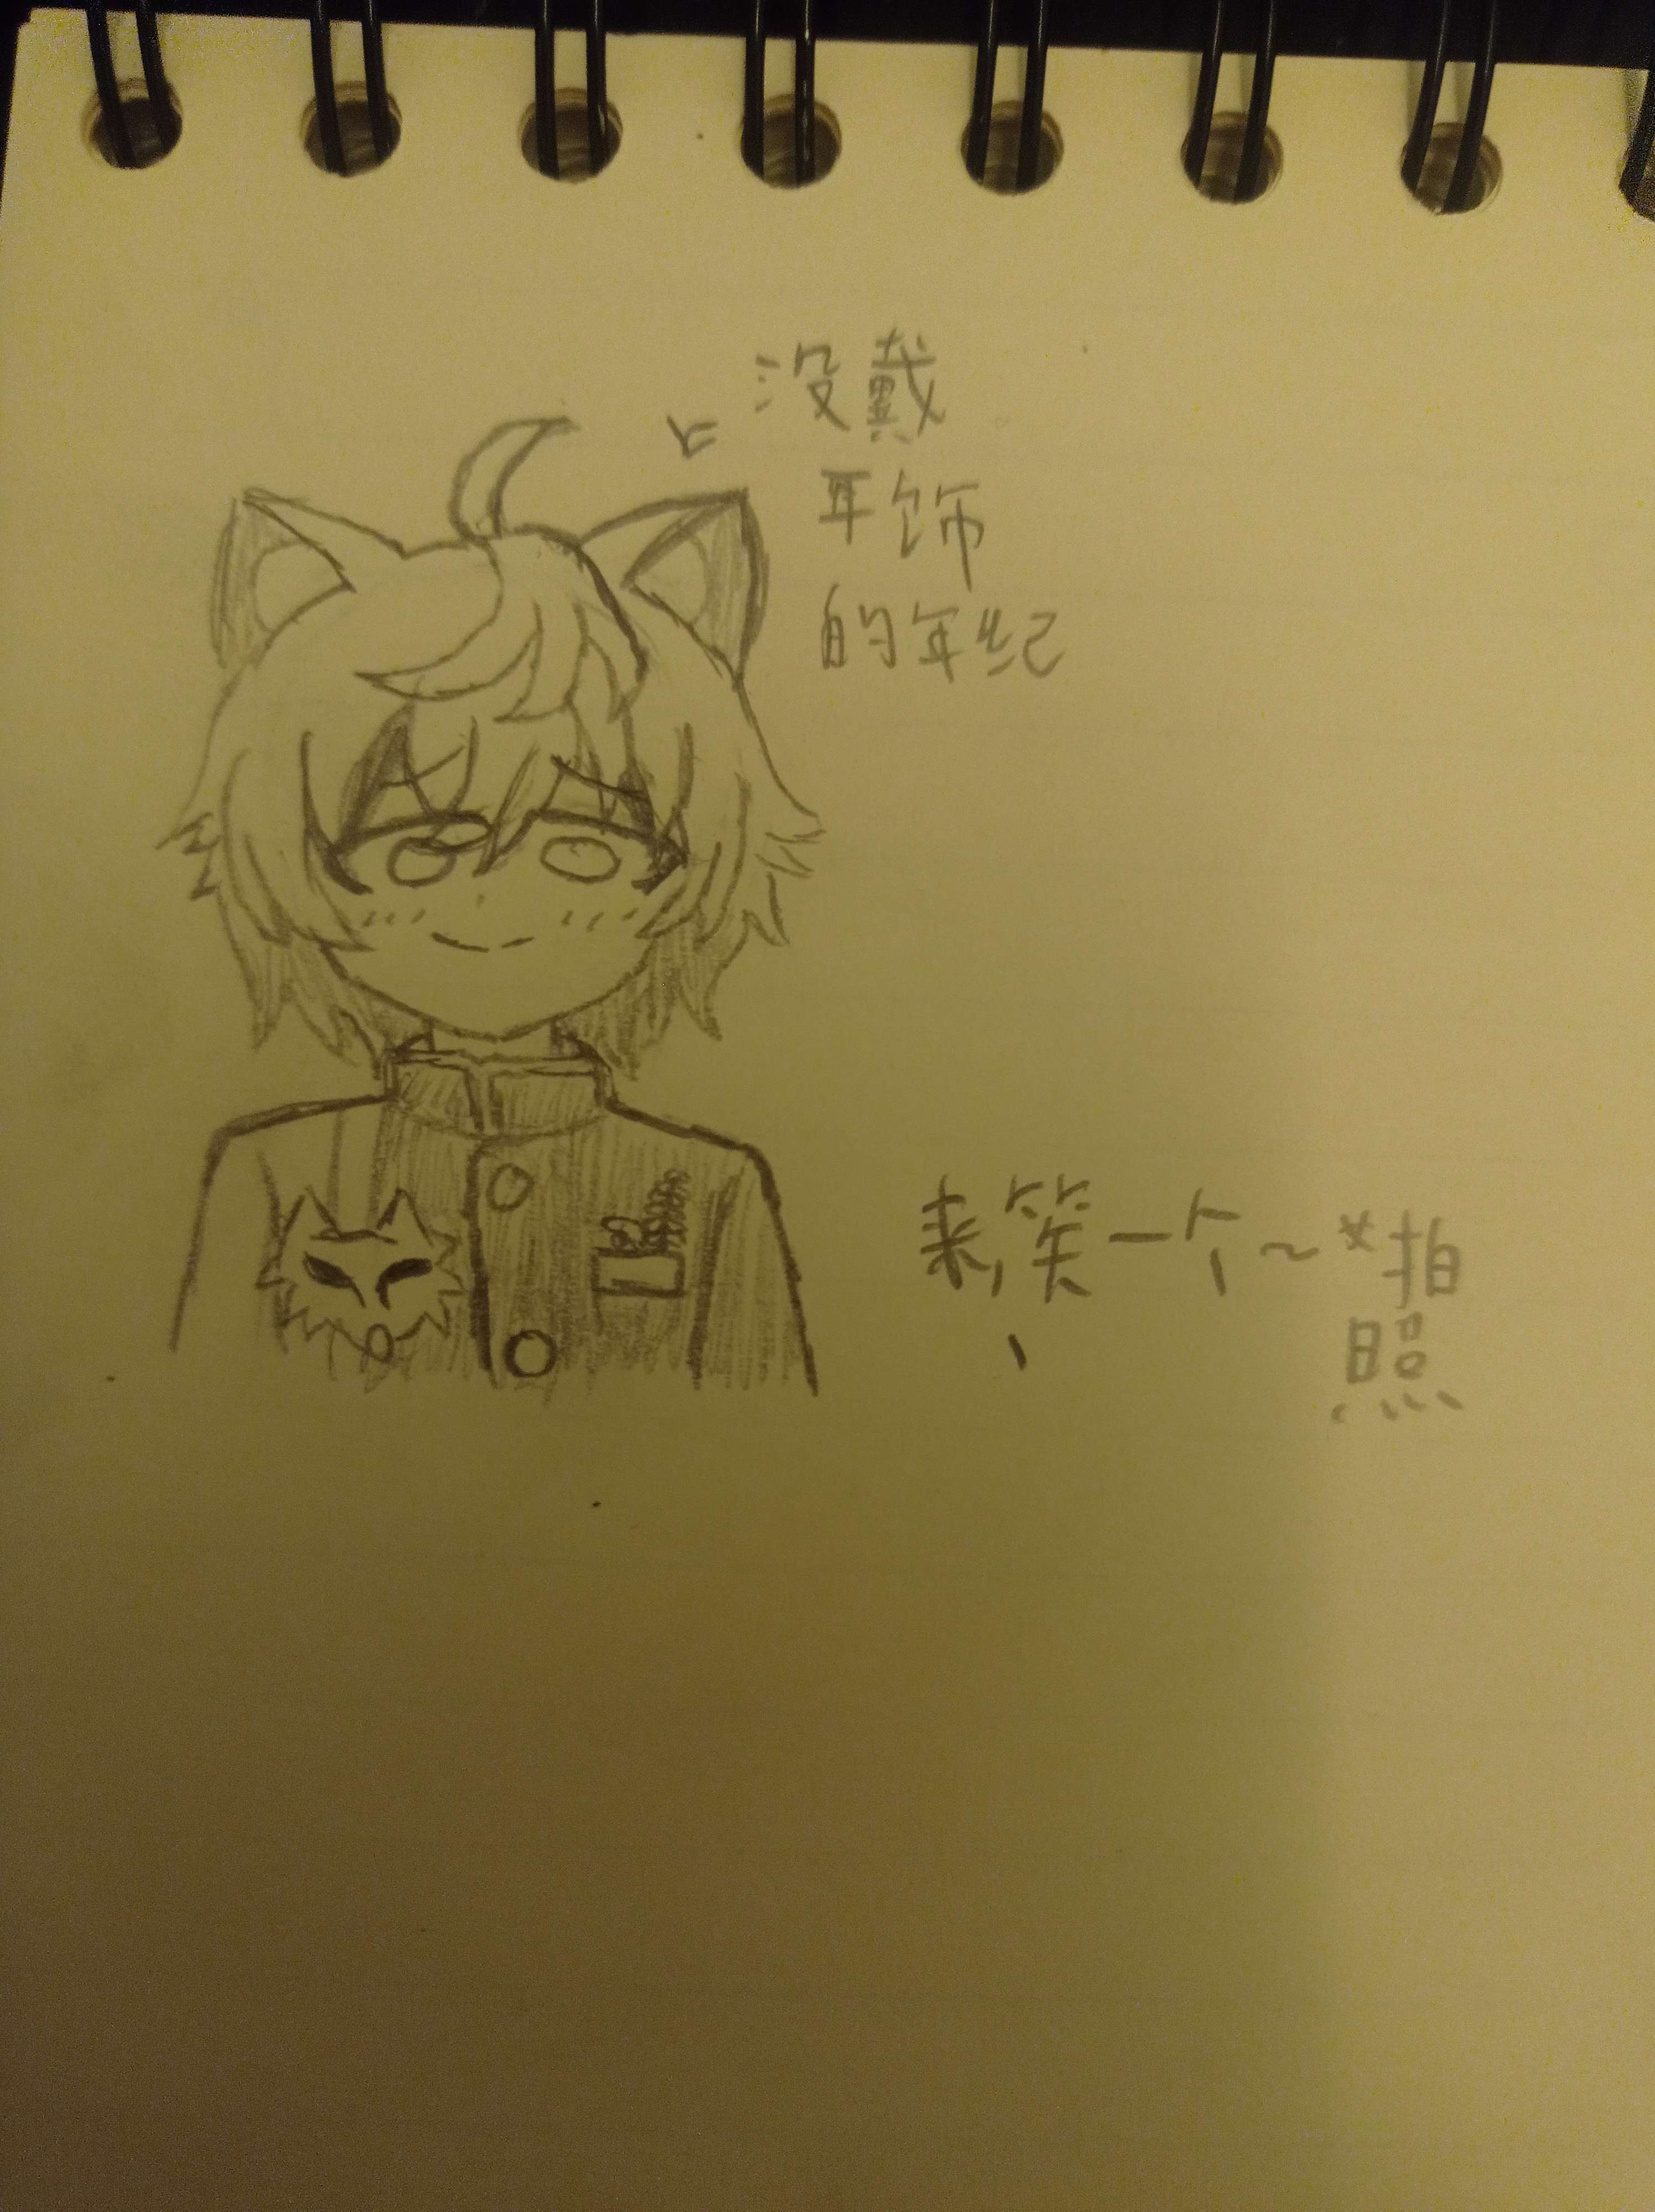 没戴
耳饰
的年纪
来,笑一个~*拍
照